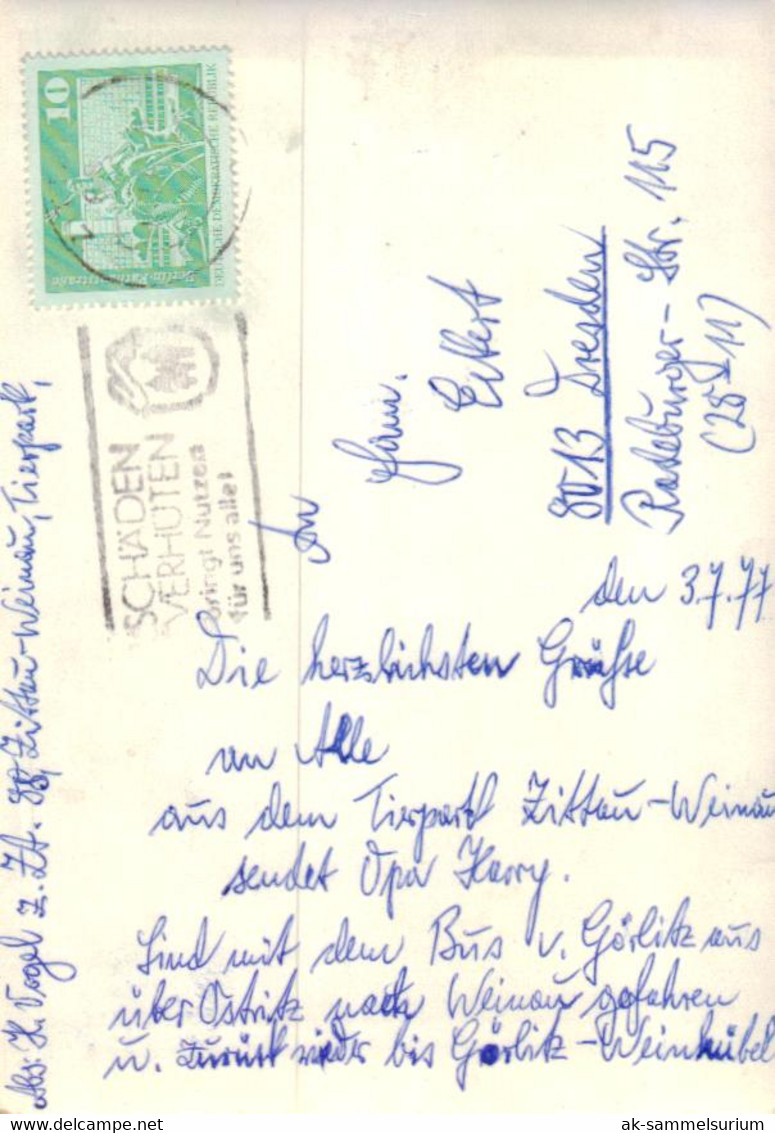 10
DEUTSCHE DEMOKRATISCHE REPUBLIK
Berlin-Rathausstraße
SCHÄDEN
VERHÜTEN
bringt Nutzen
für uns alle!
An
Fam.
Eckert
8013 Dresden
Radeburger-Str. 115
(28 V 11)
den 3.7.77
Die herzlichsten Grüße
an Alle
aus dem Tierpark Zittau-Weinau
sendet Opa Harry.
Sind mit dem Bus v. Görlitz aus
über Ostritz nach Weinau gefahren
u. zurück wieder bis Görlitz-Weinhübel
Abs: H. Vogel z. Zt. 88, Zittau-Weinau, Tierpark,
ak-sammelsurium.com